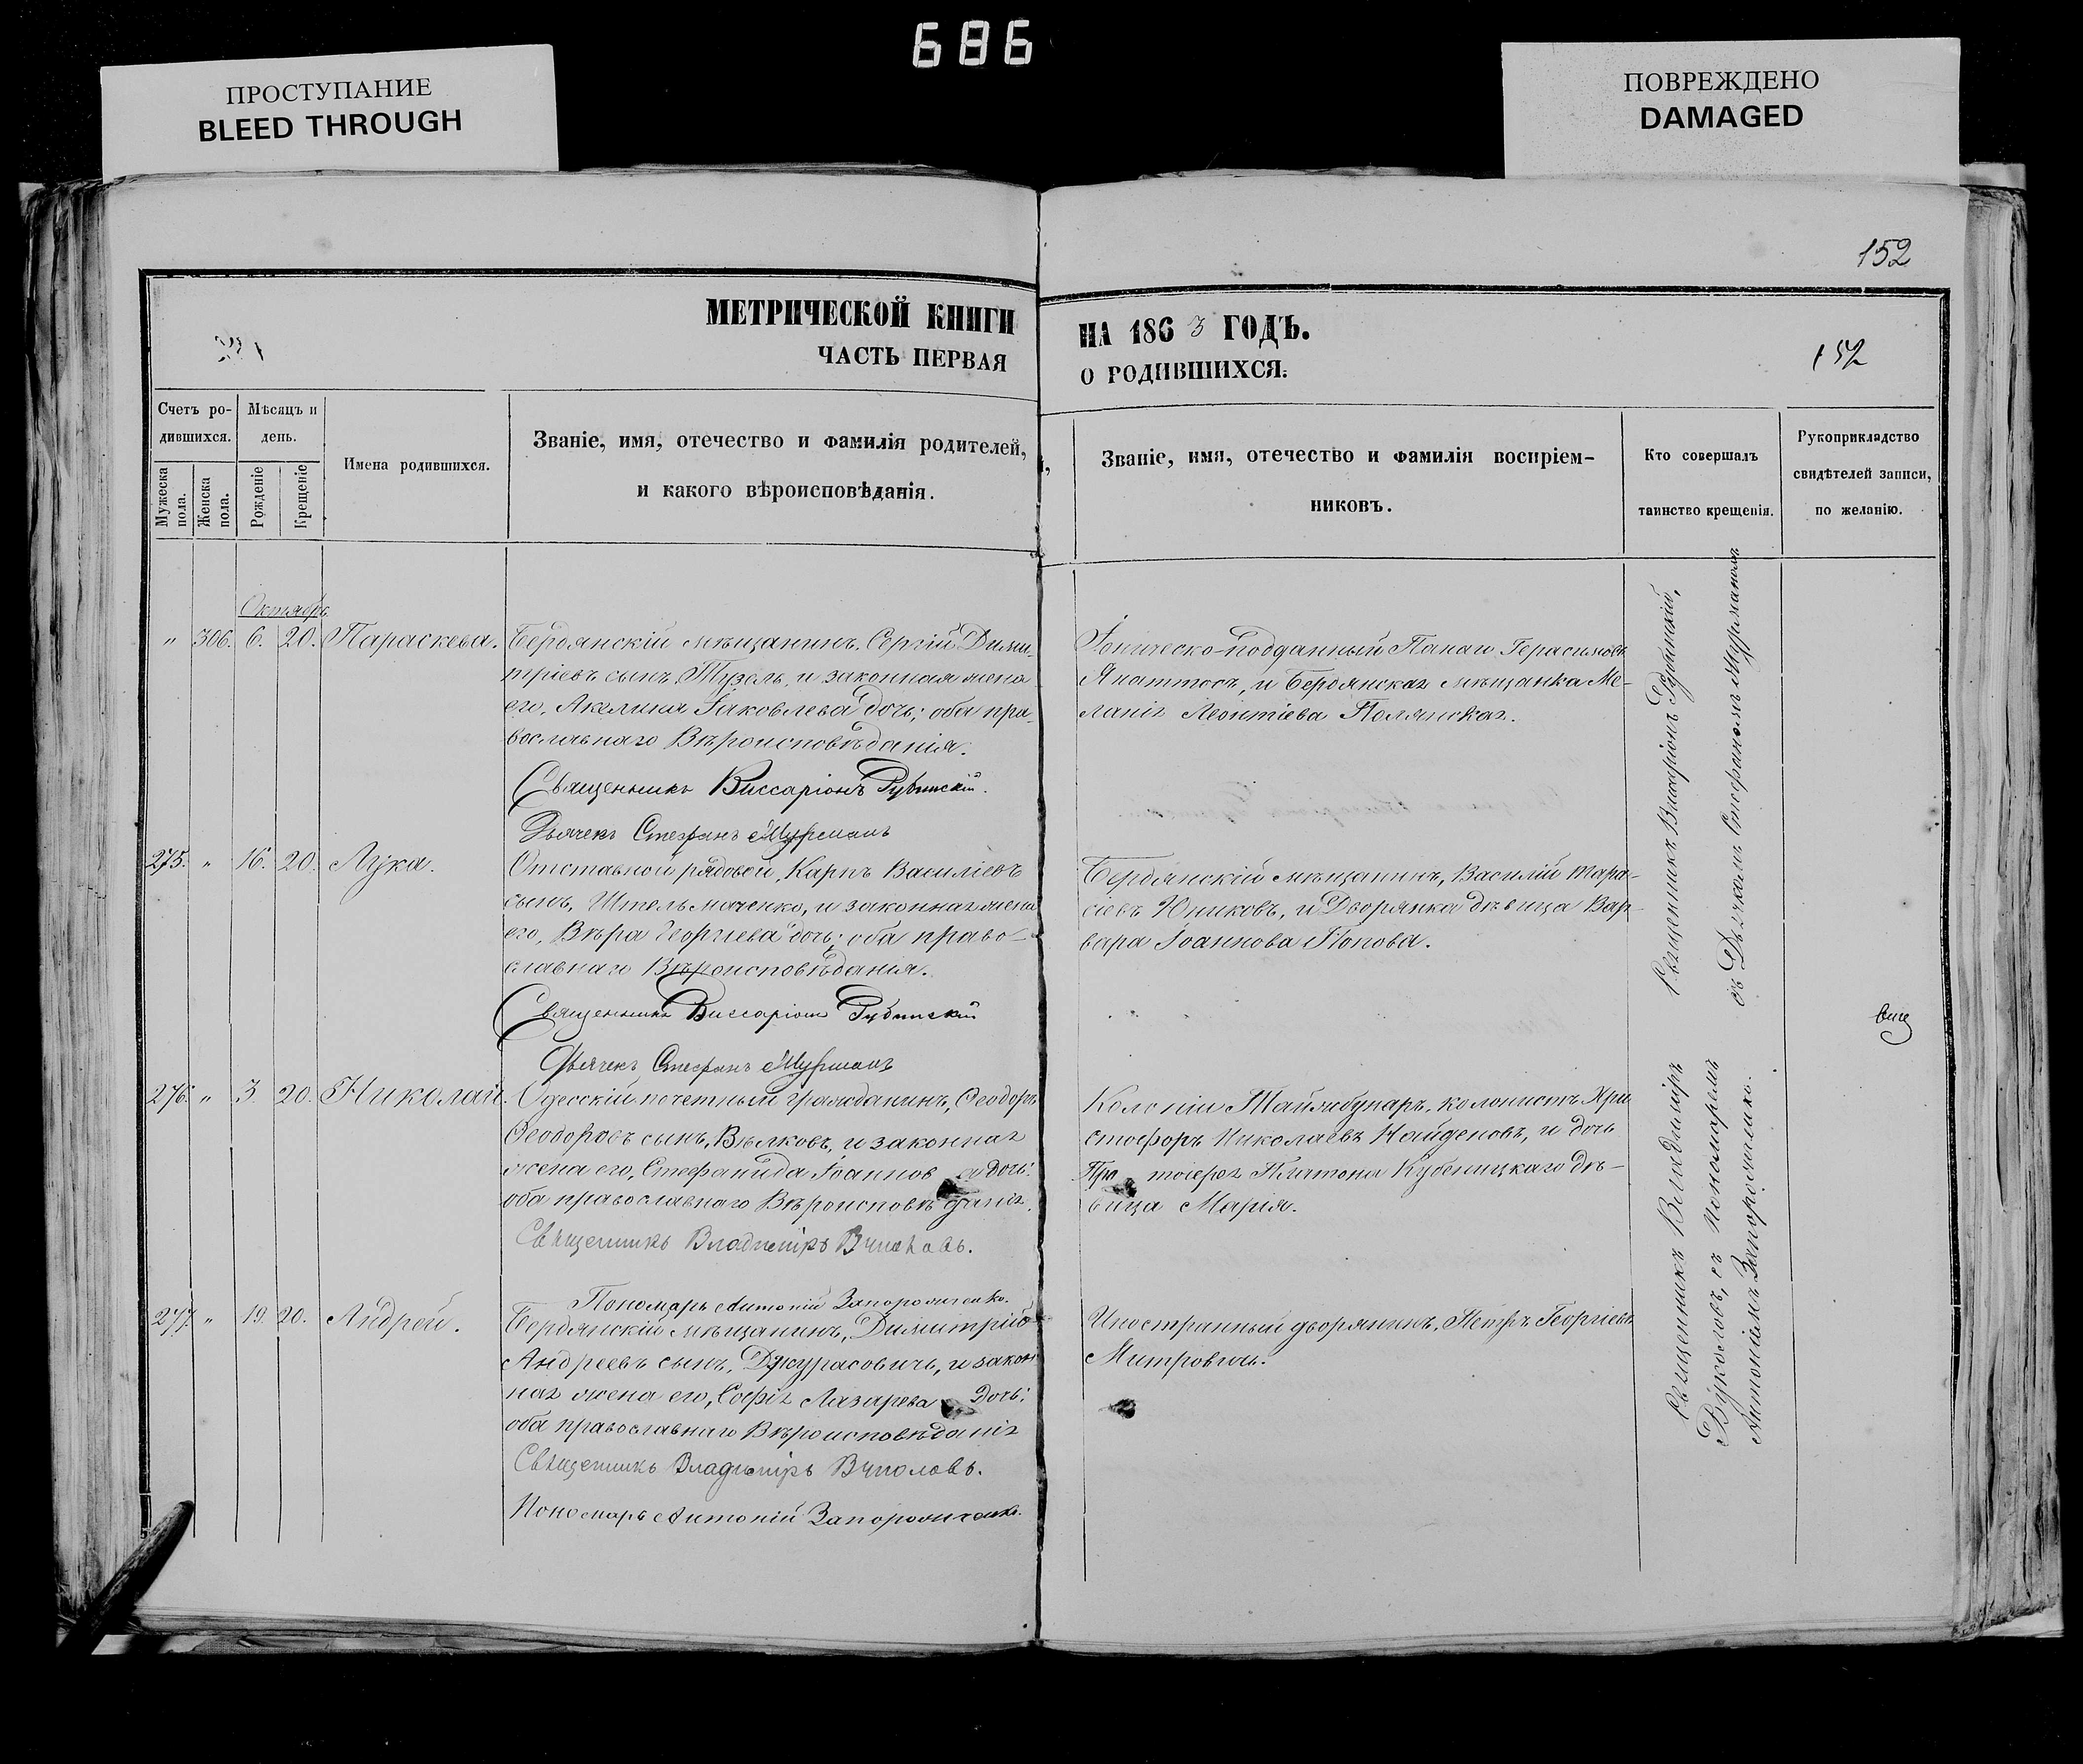 686
ПРОСТУПАНИЕ
BLEED THROUGH
ПОВРЕЖДЕНО
DAMAGED
152
МЕТРИЧЕСКОЙ КНИГИ
ЧАСТЬ ПЕРВАЯ
Счетъ ро-
дившихся.
Мужеска пола.
Женска пола.
Мѣсяцъ и
день.
Рожденіе
Крещеніе
Имена родившихся.
Званіе, имя, отечество и фамилія родителей,
и какого вѣроисповѣданія.
Октябрь
" 306. 6. 20. Параскева.
Бердянскій мѣщанинъ, Сергій Дими-
тріевъ сынъ, Тузель, и законная жена
его, Акелина Іаковлева дочь; оба пра-
вославнаго Вѣроисповѣданія.
Священникъ Виссаріонъ Рубинскій.
Дьячекъ Стефанъ Мурманъ
275. " 16. 20. Лука.
Отставной рядовой, Карпъ Василіевъ
сынъ, Штельмаченко, и законная жена
его, Вѣра Георгіева дочь; оба право-
славнаго Вѣроисповѣданія.
Священникъ Виссаріонъ Рубинскій
Дьячекъ Стефанъ Мурманъ
276. " 3. 20. Николай.
Одесскій почетный гражданинъ, Ѳеодоръ
Ѳеодоровъ сынъ, Вѣлковъ, и законная
жена его, Стефанида Іоаннова дочь:
оба православнаго Вѣроисповѣданія.
Священникъ Владиміръ
Пономарь Антоній Запорожченко.
277. " 19. 20. Андрей.
Бердянскій мѣщанинъ, Димитрій
Андреевъ сынъ, Джурасовичъ, и закон-
ная жена его, Софія Лазарева дочь:
оба православнаго Вѣроисповѣданія
Священникъ Владиміръ
Пономарь Антоній Запорожченко.
НА 1863 ГОДЪ.
О РОДИВШИХСЯ.
152
Званіе, имя, отечество и фамилія воспріем-
никовъ.
Кто совершалъ
таинство крещенія.
Рукоприкладство
свидѣтелей записи,
по желанію.
Іоническо-подданный Панаги Герасимовъ
Яната​тосъ, и Бердянская мѣщанка Ме-
ланія Леонтіева Полянская.
Бердянскій мѣщанинъ, Василій Тара-
сіевъ Юниковъ, и Дворянка дѣвица Вар-
вара Іоаннова Попова.
Колоніи Таймбунаръ, колонистъ Хри-
стофоръ Николаевъ Найденовъ, и дочь
Протоіерея Платона Кубеницкаго дѣ-
вица Марія.
Иностранный дворянинъ, Петръ Георгіевъ
Митровичъ.
Священникъ Виссаріонъ Рубинскій,
съ Дьячкомъ Стефаномъ Мурманомъ
Священникъ Владиміръ
Вуколовъ, съ Пономаремъ
Антоніемъ Запорожченко.